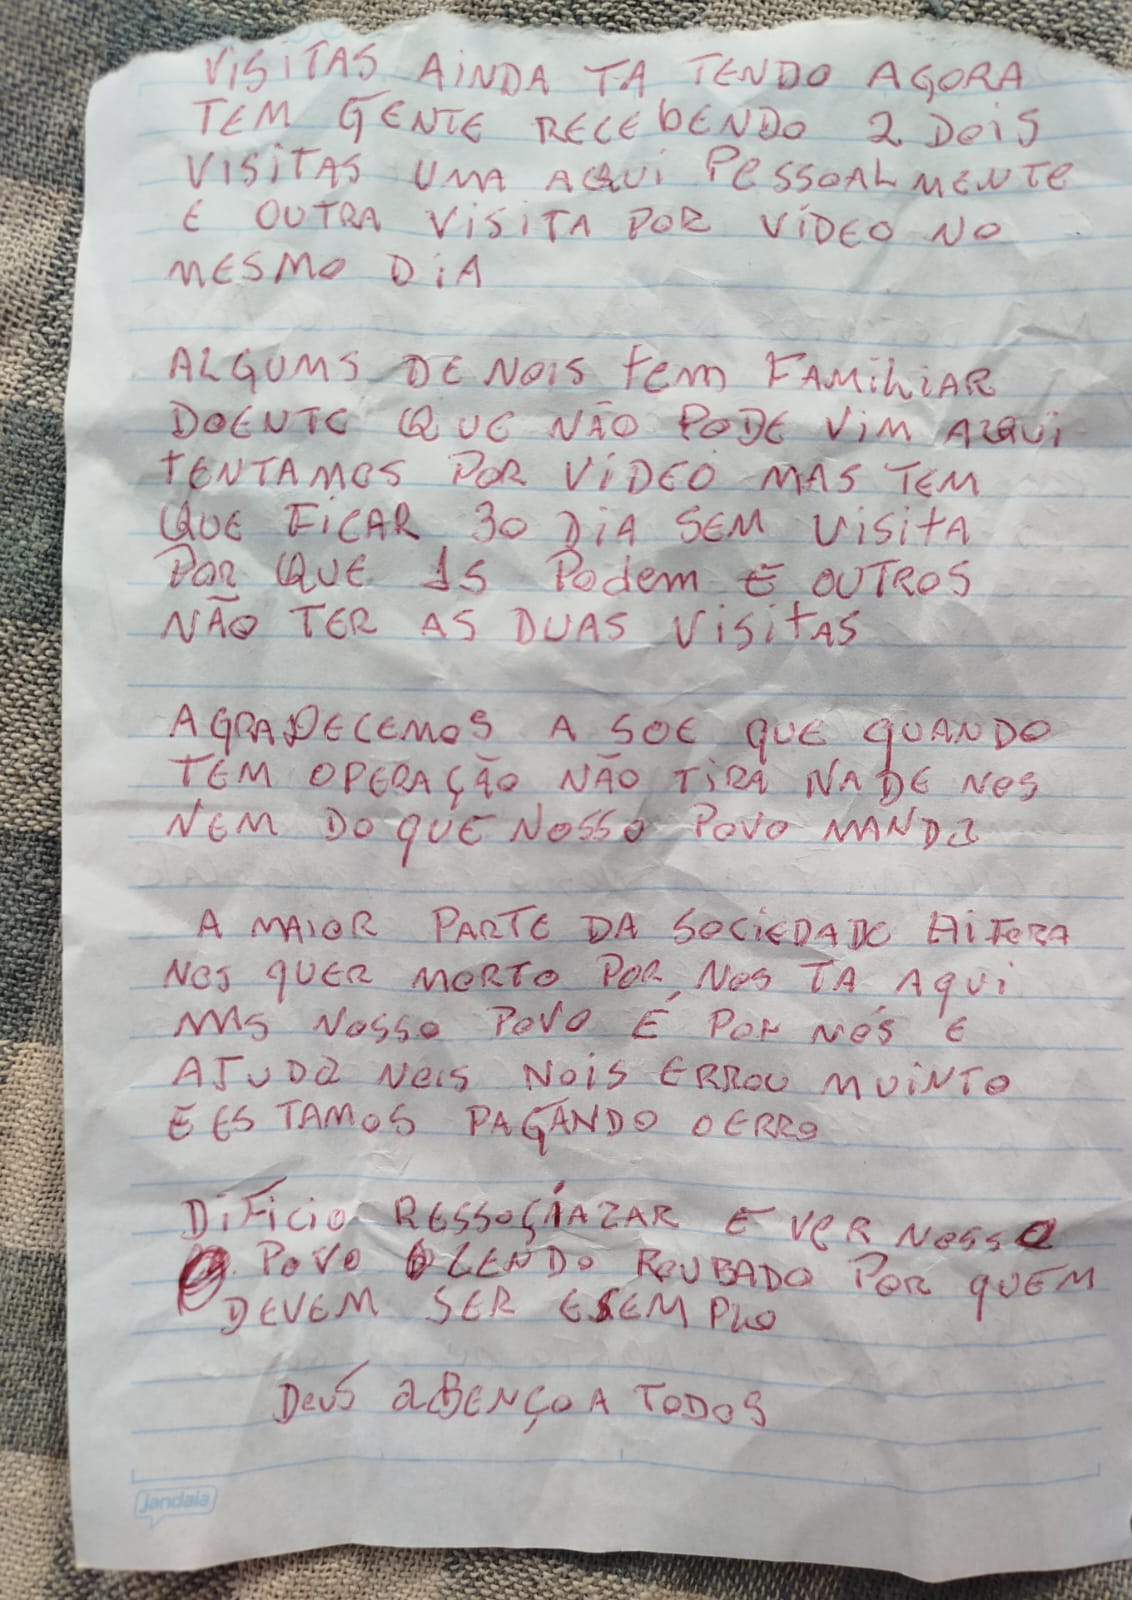 VISITAS AINDA TA TENDO AGORA
TEM GENTE RECEbENDO 2 DOIS
VISITAS UMA AQUI PESSOALMENTE
E OUTRA VISITA POR VÍDEO NO
MESMO DIA
ALGUMS DE NOIS tem FAMILIAR
DOENTE QUE NÃO PODE VIM AQUI
TENTAMOS POR VÍDEO MAS TEM
QUE FICAR 30 DIA SEM VISITA
POR QUE 15 Podem E OUTROS
NÃO TER AS DUAS VISITAS
AGRADECEMOS A SOE QUE QUANDO
TEM OPERAÇÃO NÃO TIRA NADE NOS
NEM DO QUE NOSSO POVO MANDA
A MAIOR PARTE DA SOCIEDADE
NOS QUER MORTO POR NOS TA AQUI
MAS NOSSO POVO É POR NÓS E
AJUDA NOIS NOIS ERROU MUINTO
E ESTAMOS PAGANDO O ERRO
DIFICIO RESSOCIAZAR E VER NOSSO
POVO SENDO ROUBADO POR QUEM
DEVEM SER ESEMPLO
DEUS ABENÇOA TODOS
jandaia